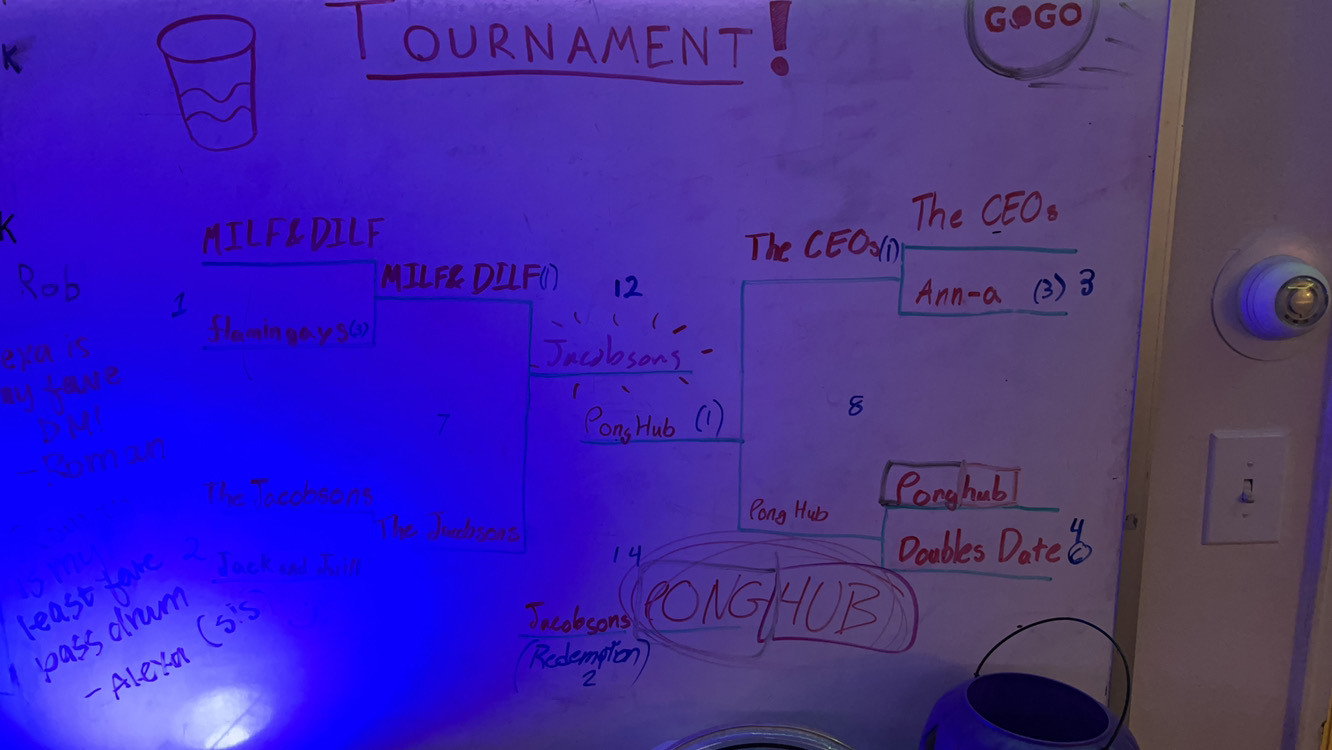 TOURNAMENT!
GOGO
K
K
Rob
exa is
my fave
DM!
- Roman
is my
least fave
bass drum
- Alexa (sis
MILF&DILF
1
flamingays(3)
MILF& DILF(1)
7
The Jacobsons
The Jacobsons
2
Jack and Jill
12
Jacobsons
PongHub (1)
The CEOs(1)
The CEOs
Ann-a (3) 3
8
Pong Hub
Ponghub
Doubles Date 4
6
14
PONG HUB
Jacobsons
(Redemption)
2